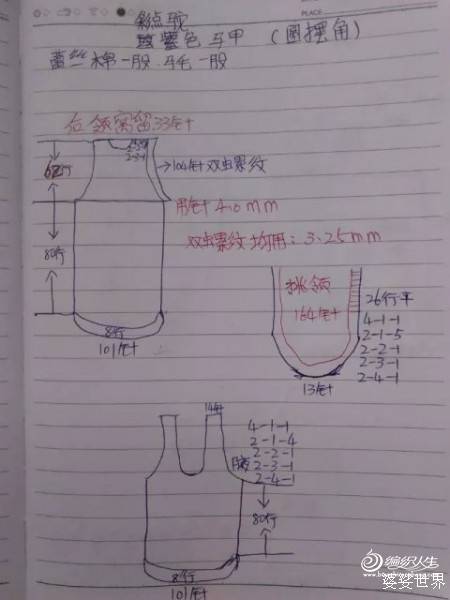 PLACE
紫色马甲（圆摆角）
蕾丝棉一股.马毛一股
后领窝留33针
2-2-1
2-3-1
62行
104针双虫螺纹
用针 4.0mm
双虫螺纹均用：3.25mm
80行
8行
101针
挑领
164针
26行平
4-1-1
2-1-5
2-2-1
2-3-1
2-4-1
13针
14针
4-1-1
2-1-4
2-2-1
2-3-1
2-4-1
腋
80行
8行
101针
编织人生
婆婆世界